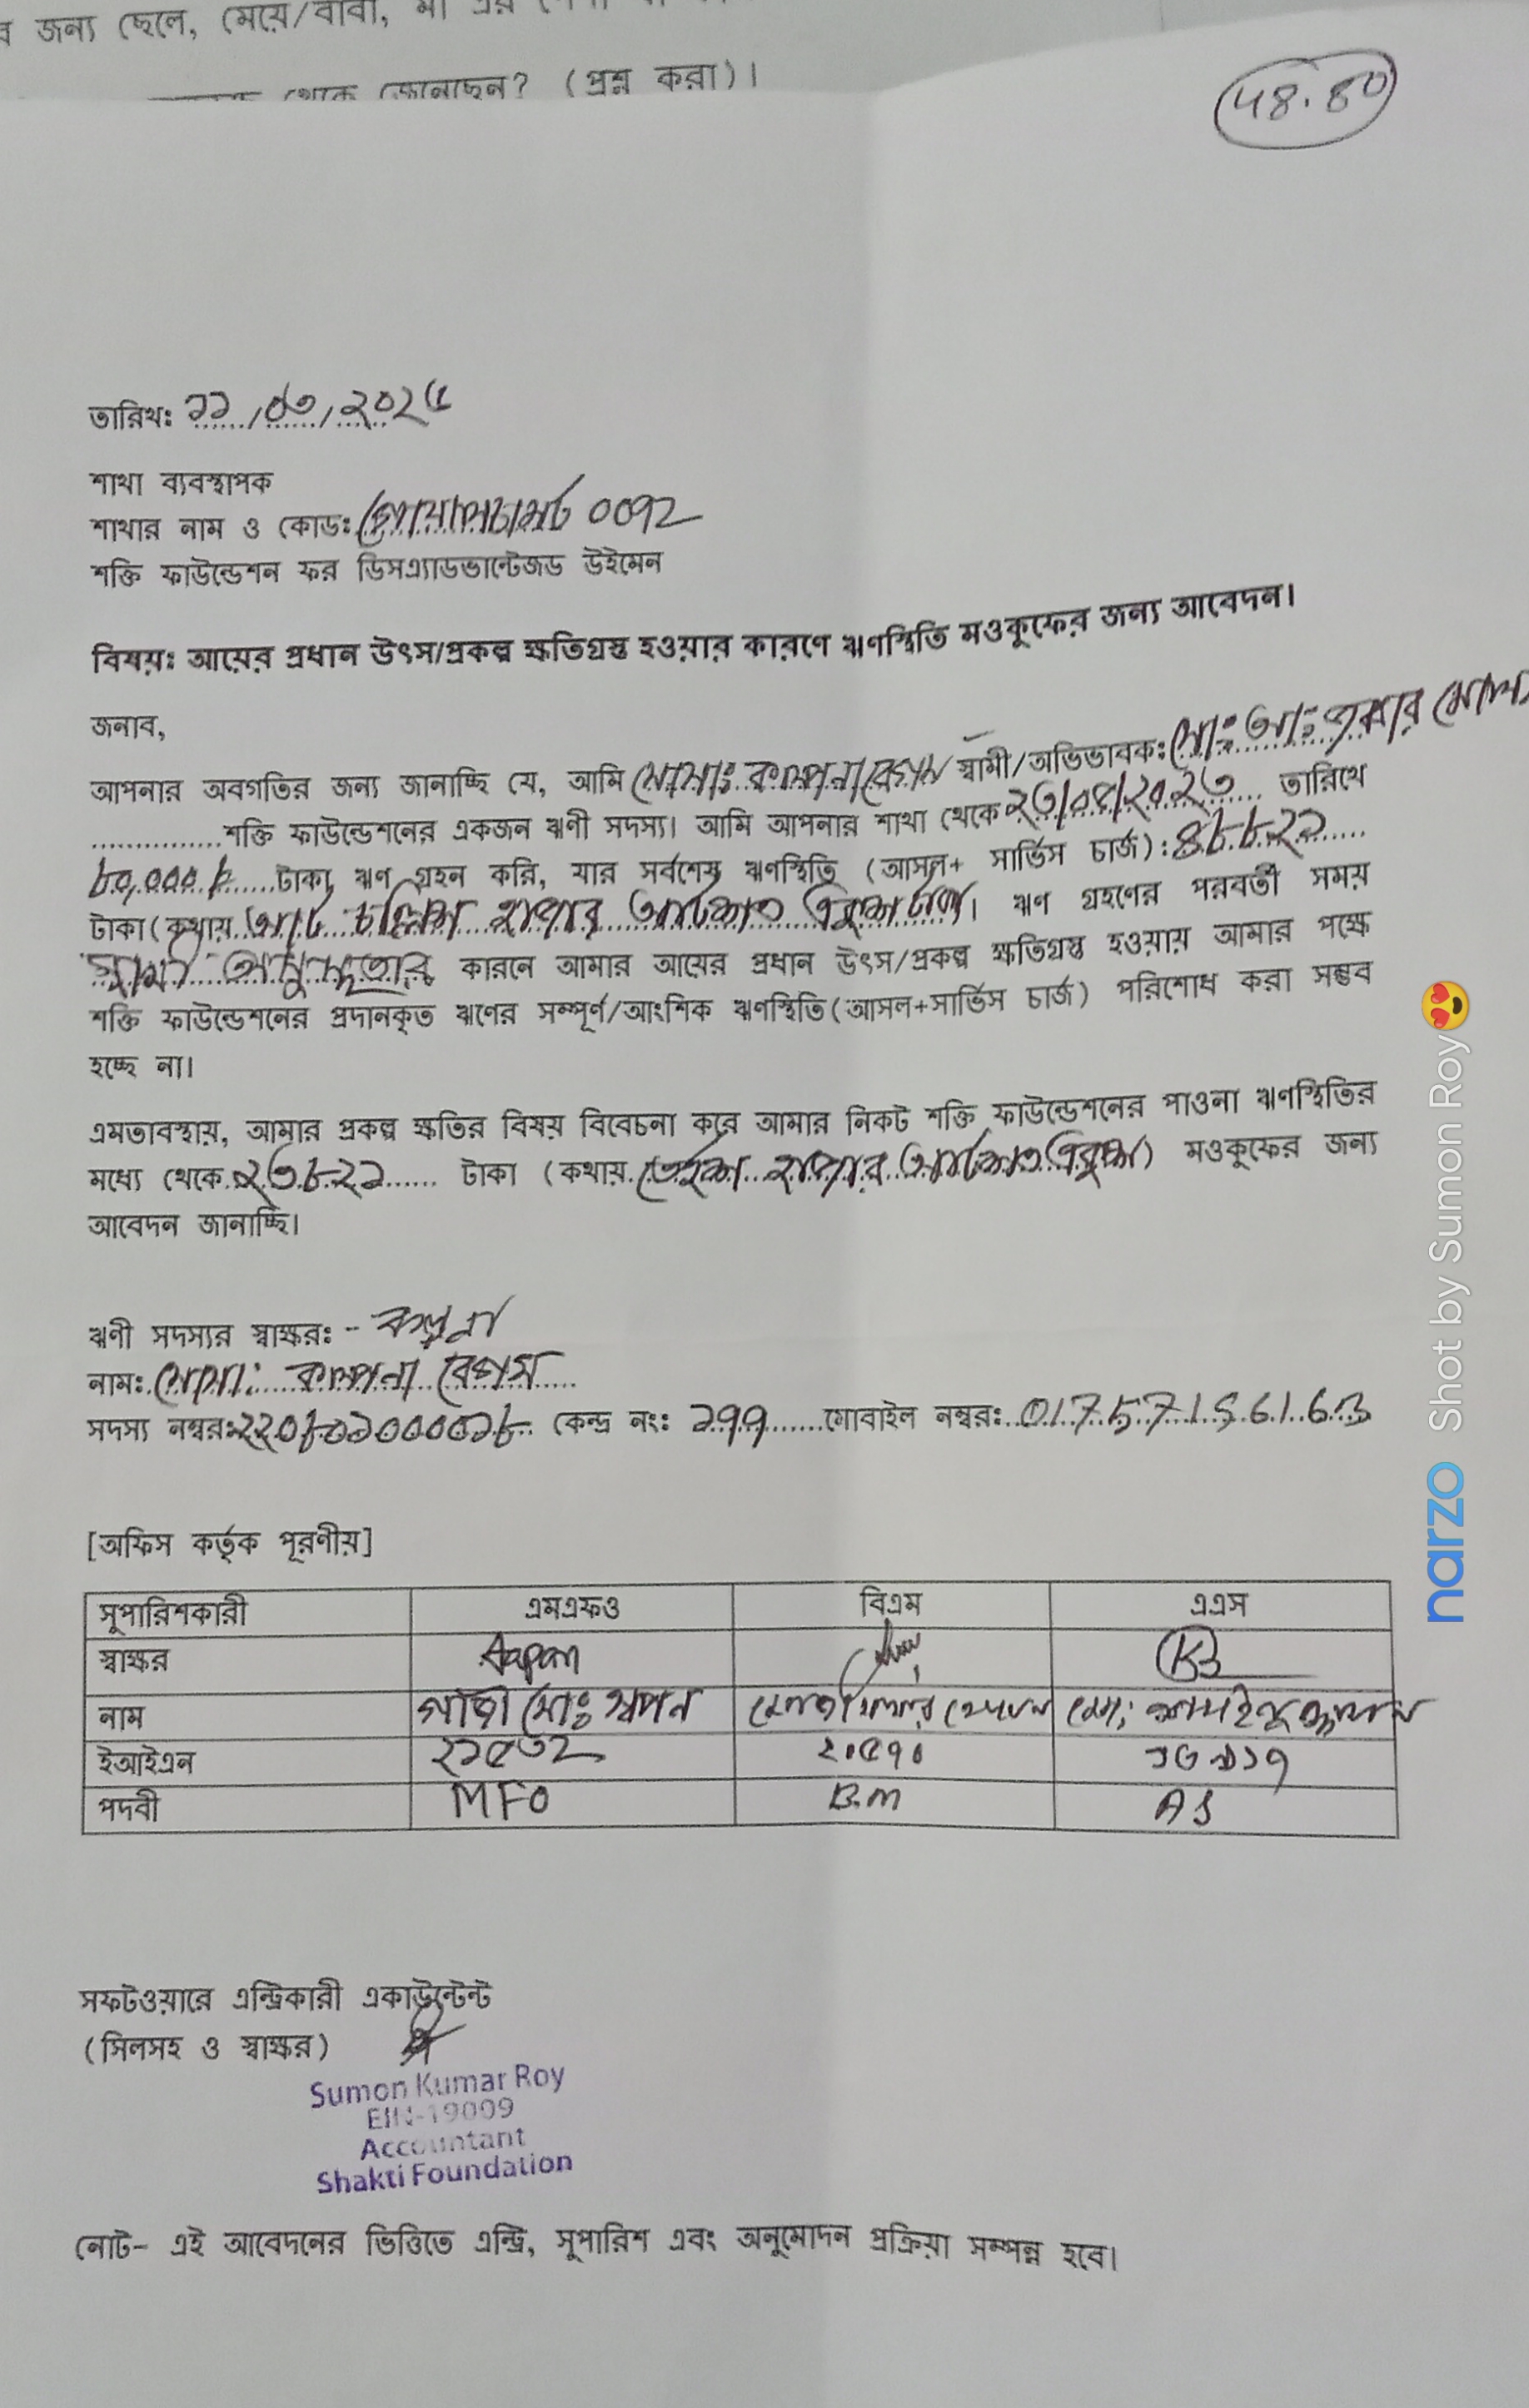 জন্য ছেলে, মেয়ে/বাবা, মা এর
থেকে জেনেছেন? (প্রশ্ন করা)।
48.80
তারিখঃ ১১/০৩/২০২৫
শাখা ব্যবস্থাপক
শাখার নাম ও কোডঃ গোয়ালচামট 0092
শক্তি ফাউন্ডেশন ফর ডিসএ্যাডভান্টেজড উইমেন
বিষয়ঃ আয়ের প্রধান উৎস/প্রকল্প ক্ষতিগ্রস্ত হওয়ার কারণে ঋণস্থিতি মওকুফের জন্য আবেদন।
জনাব,
আপনার অবগতির জন্য জানাচ্ছি যে, আমি মোসাঃ কল্পনা বেগম স্বামী/অভিভাবকঃ মোঃ আঃ
...............শক্তি ফাউন্ডেশনের একজন ঋণী সদস্য। আমি আপনার শাখা থেকে ২৩/০৪/২০২৩ তারিখে
৮০,০০০/= টাকা ঋণ গ্রহন করি, যার সর্বশেষ ঋণস্থিতি (আসল+ সার্ভিস চার্জ): ৪৮৮২১
টাকা(কথায় আট চল্লিশ হাজার আটশত একুশ টাকা)। ঋণ গ্রহণের পরবর্তী সময়
স্বামী অসুস্থতার কারনে আমার আয়ের প্রধান উৎস/প্রকল্প ক্ষতিগ্রস্ত হওয়ায় আমার পক্ষে
শক্তি ফাউন্ডেশনের প্রদানকৃত ঋণের সম্পূর্ণ/আংশিক ঋণস্থিতি(আসল+সার্ভিস চার্জ) পরিশোধ করা সম্ভব
হচ্ছে না।
এমতাবস্থায়, আমার প্রকল্প ক্ষতির বিষয় বিবেচনা করে আমার নিকট শক্তি ফাউন্ডেশনের পাওনা ঋণস্থিতির
মধ্যে থেকে ২৩৮২১ টাকা (কথায় তেইশ হাজার আটশত একুশ) মওকুফের জন্য
আবেদন জানাচ্ছি।
ঋণী সদস্যর স্বাক্ষরঃ - কল্পনা
নামঃ মোসা: কল্পনা বেগম
সদস্য নম্বরঃ কেন্দ্র নং: ১৭৭ মোবাইল নম্বরঃ 01757156163
[অফিস কর্তৃক পূরণীয়]
সুপারিশকারী এমএফও বিএম এএস
স্বাক্ষর Sapon
নাম গাজী মোঃ স্বপন মো:
ইআইএন ২১৫৩২ ২০৫৭০
পদবী MFO B.m AS
সফটওয়ারে এন্ট্রিকারী একাউন্টেন্ট
(সিলসহ ও স্বাক্ষর)
Sumon Kumar Roy
EIN-19009
Accountant
Shakti Foundation
নোট- এই আবেদনের ভিত্তিতে এন্ট্রি, সুপারিশ এবং অনুমোদন প্রক্রিয়া সম্পন্ন হবে।
narzo Shot by Sumon Roy😍